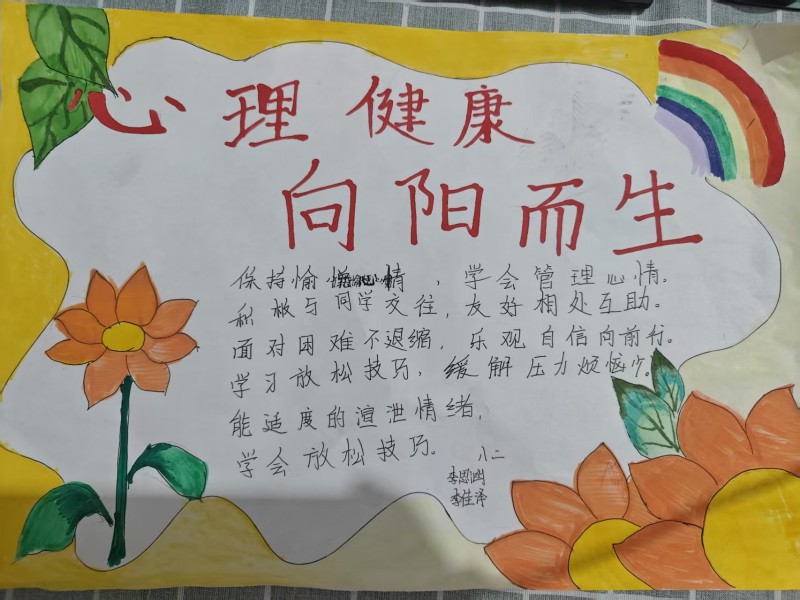 心理健康
向阳而生
保持愉悦心情，学会管理心情。
积极与同学交往，友好相处互助。
面对困难不退缩，乐观自信向前行。
学习放松技巧，缓解压力烦恼少。
能适度的渲泄情绪，
学会放松技巧。
八二
李思
李佳泽